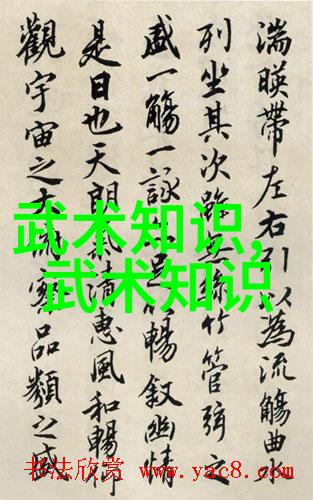 湍暎帶左右引以為流觴曲
列坐其次雖無絲竹管弦之
盛一觴一詠足暢敘幽情
是日也天朗清惠風和暢仰
觀宇宙之大察品類之盛
武术知识,
武术知识
书法欣赏 www.yac8.com